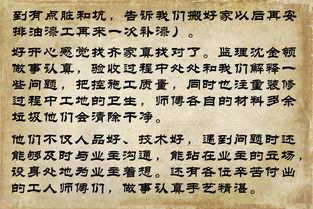 到有点脏和坑，告诉我们搬好家以后再安
排油漆工再来一次补漆）。
好开心感觉找齐家真找对了。监理沈金领
做事认真，验收过程中处处和我们解释一
些问题，把控施工质量，同时也注重装修
过程中工地的卫生，师傅各自的材料多余
垃圾他们会清除干净。
他们不仅人品好、技术好，遇到问题时还
能够及时与业主沟通，能站在业主的立场，
设身处地为业主着想。还有各位辛苦付出
的工人师傅们，做事认真手艺精湛。